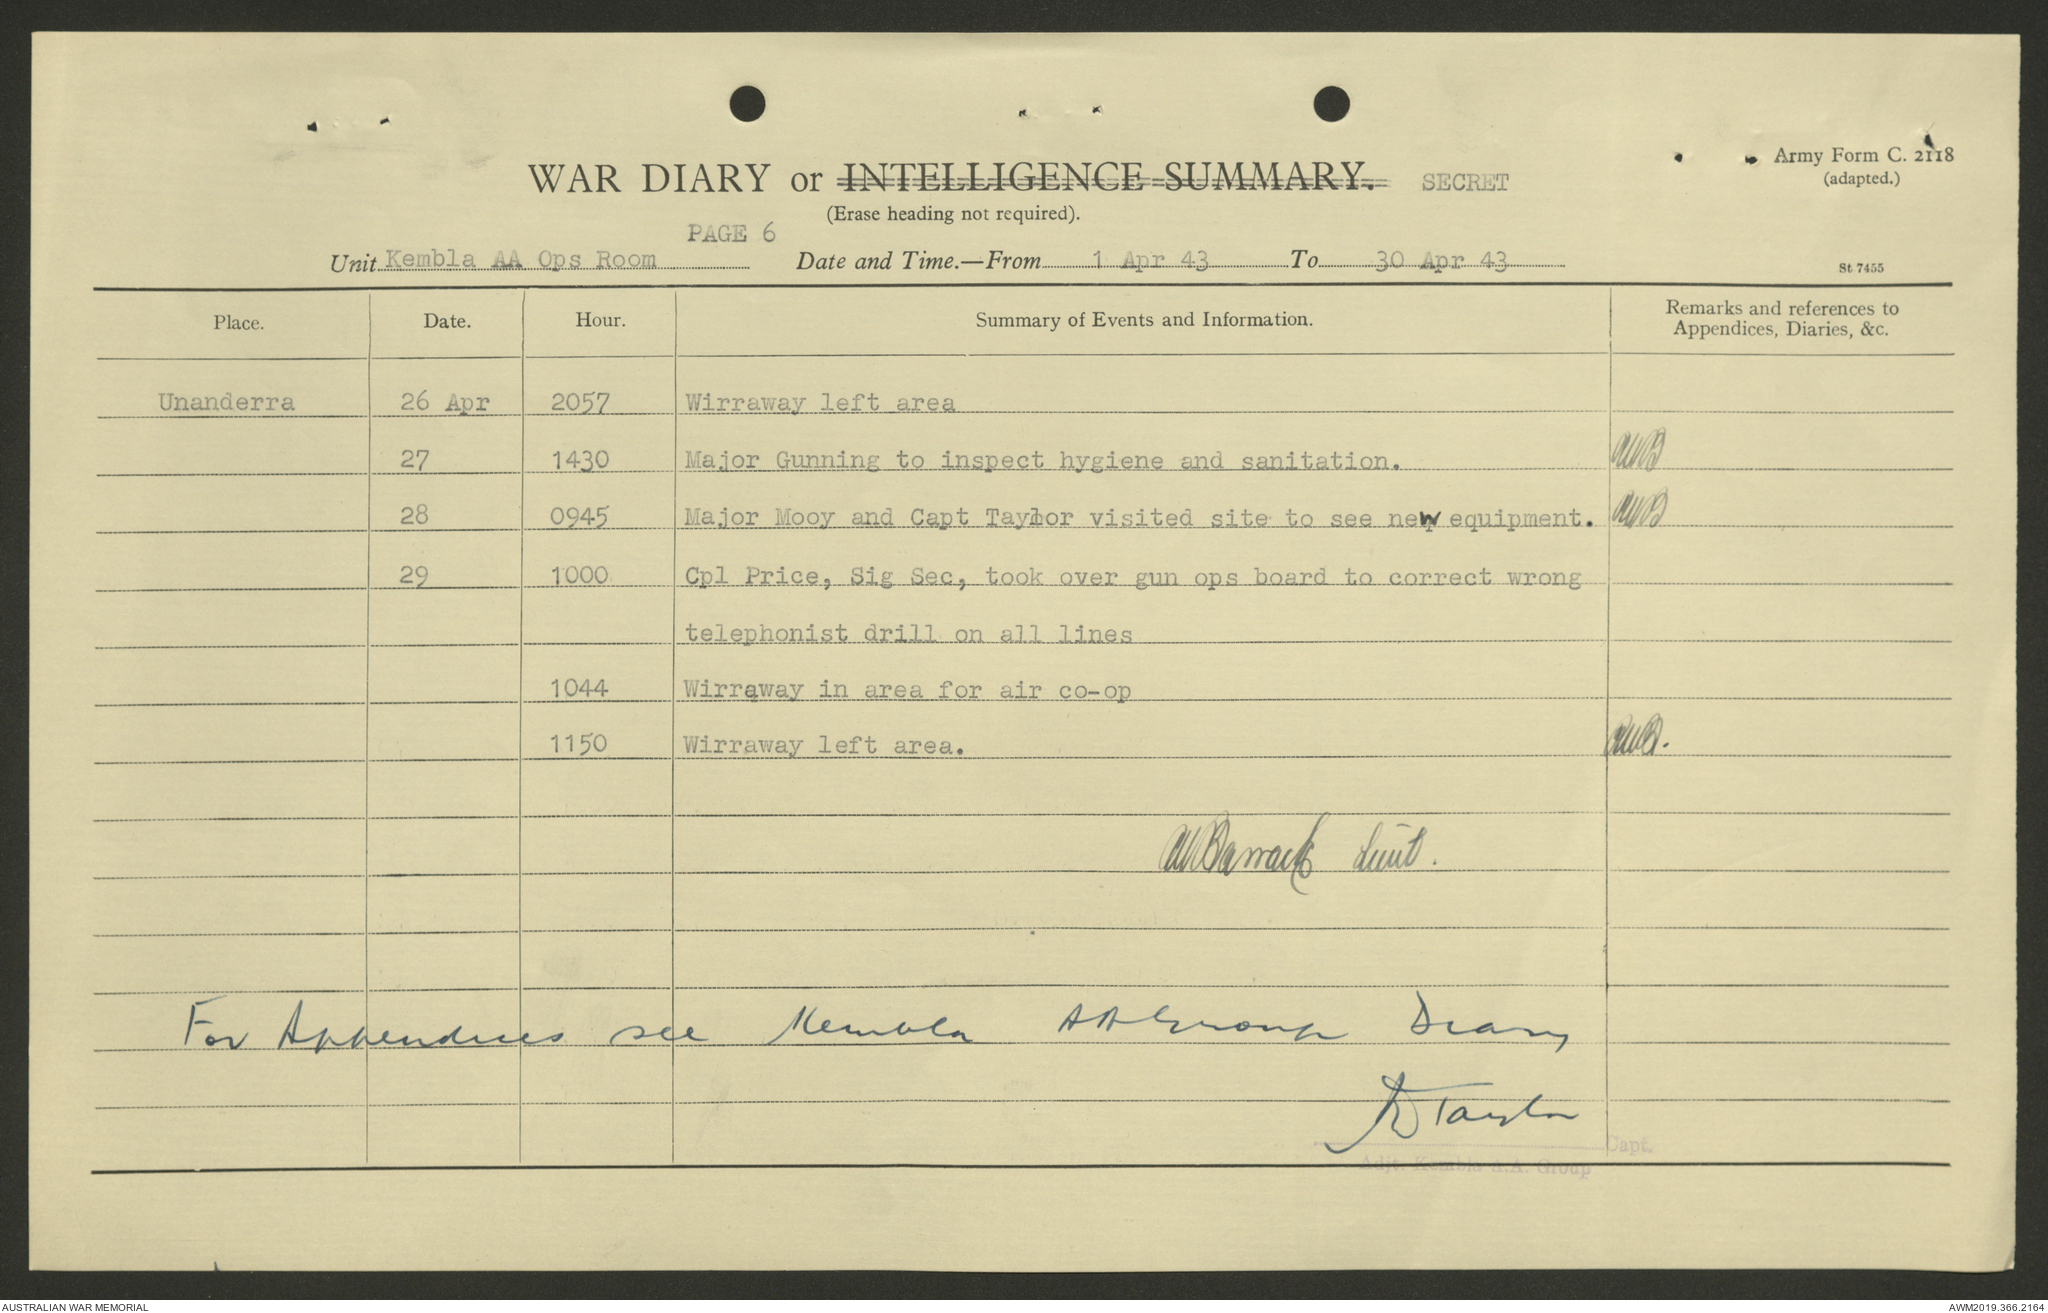 WAR DIARY or INTELLIGENCE SUMMARY. SECRET
Army Form C. 2118
(adapted.)
(Erase heading not required).
PAGE 6
Unit Kembla AA Ops Room Date and Time.—From 1 Apr 43 To 30 Apr 43
St 7455
Place. Date. Hour. Summary of Events and Information. Remarks and references to Appendices, Diaries, &c.
Unanderra 26 Apr 2057 Wirraway left area
27 1430 Major Gunning to inspect hygiene and sanitation. AWB
28 0945 Major Mooy and Capt Taylor visited site to see new equipment. AWB
29 1000 Cpl Price, Sig Sec, took over gun ops board to correct wrong
telephonist drill on all lines
1044 Wirraway in area for air co-op
1150 Wirraway left area. AWB.
AWBarrack Lieut.
For Appendices see Kembla AA Group Diary
Taylor
Capt.
Adjt. Kembla A.A. Group
AUSTRALIAN WAR MEMORIAL
AWM2019.366.2164